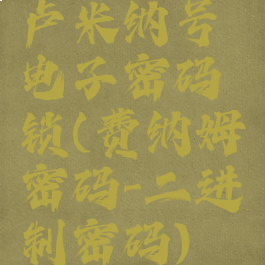 卢米纳号
电子密码
锁(费纳姆
密码-二进
制密码)